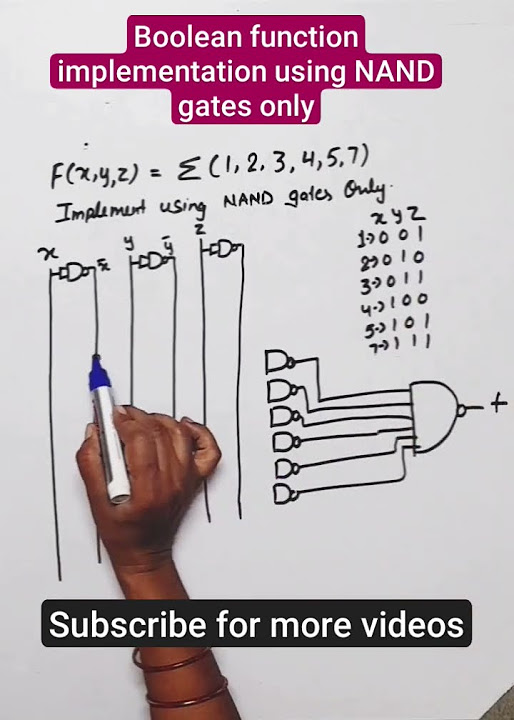 Boolean function
implementation using NAND
gates only
F(x,y,z) = Σ(1,2,3,4,5,7)
Implement using NAND gates Only.
x y z
1→0 0 1
2→0 1 0
3→0 1 1
4→1 0 0
5→1 0 1
7→1 1 1
x x̄ y ȳ z
f
Subscribe for more videos